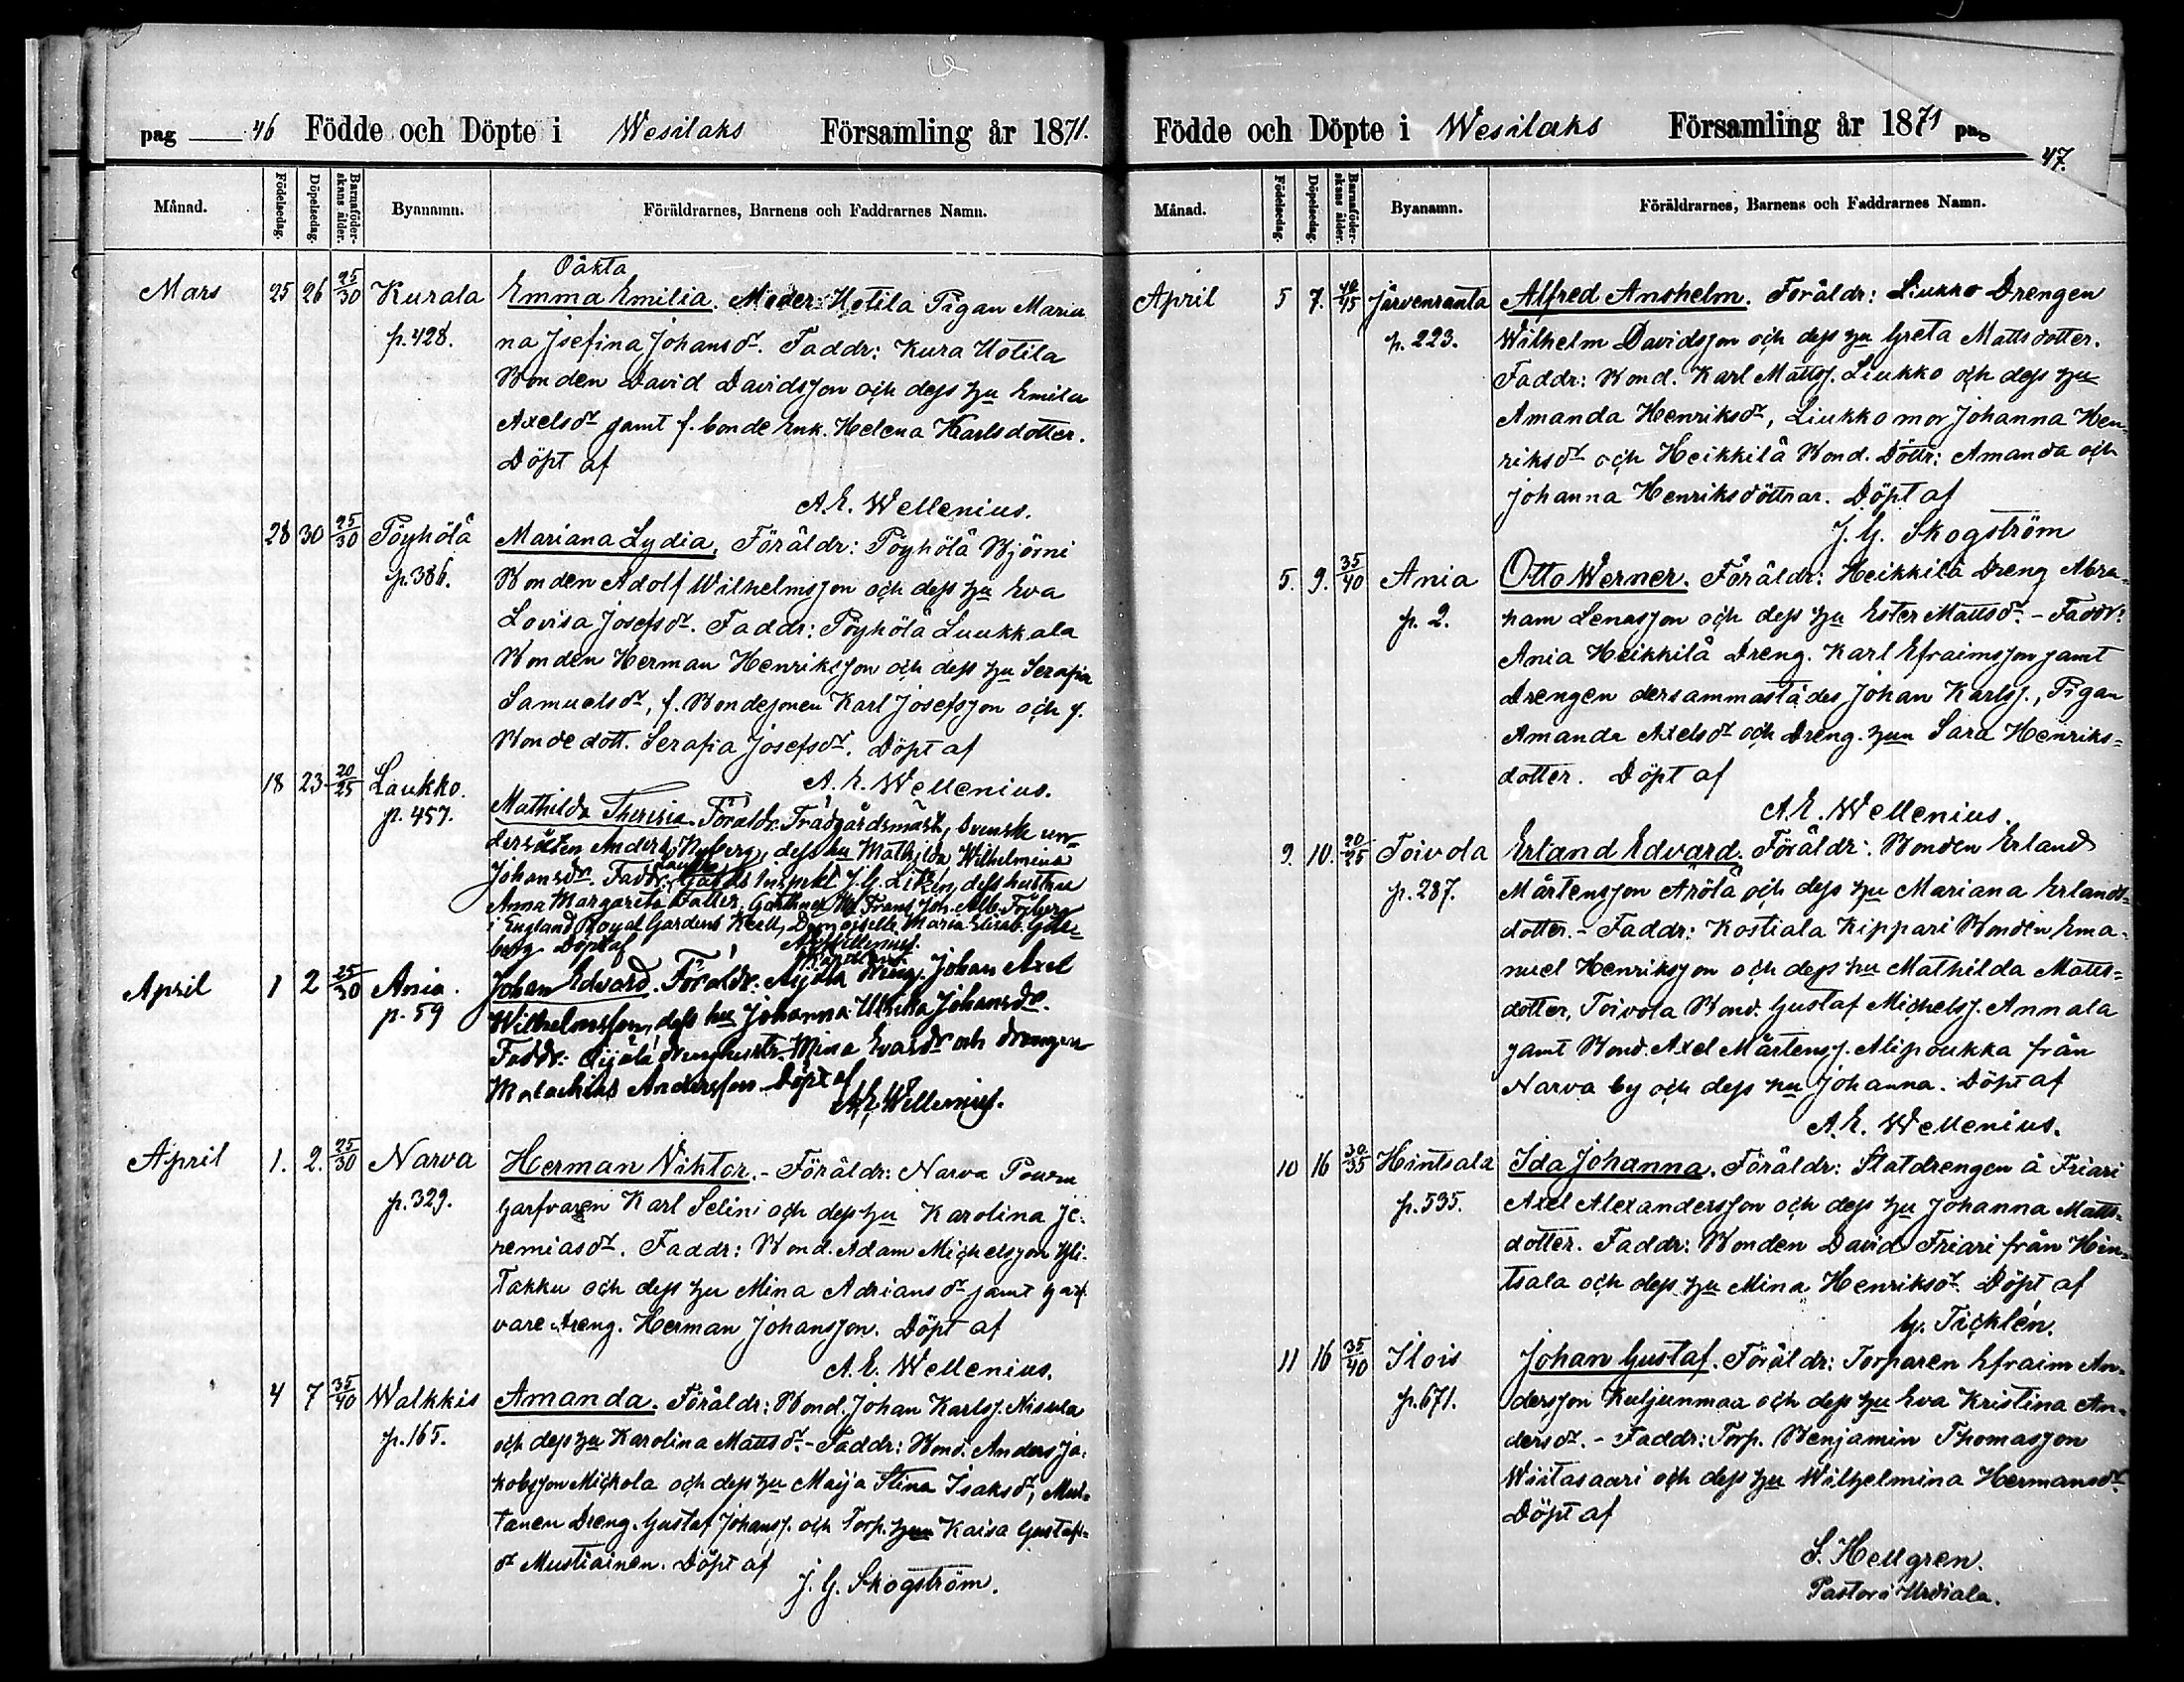 pag 46 Födde och Döpte i Wesilaks Församling år 1871.
Månad. Födelsedag. Döpelsedag. Barnaföderskans ålder. Byanamn. Föräldrarnes, Barnens och Faddrarnes Namn.
Oäkta
Mars 25 26 25/30 Kurala Emma Emilia. Moder: Uotila Pigan Maria
p. 428. na Josefina Johansdr. Faddr: Kura Uotila
Bonden David Davidsson och dess hu Emilia
Axelsdr samt f. bonde Enk. Helena Karlsdotter.
Döpt af
A. E. Wellenius.
28 30 25/30 Pöyhölä Mariana Lydia. Föräldr: Pöyhölä Björni
p. 386. Bonden Adolf Wilhelmsson och dess hu Eva
Lovisa Josefsdr. Faddr: Pöyhölä Luukkala
Bonden Herman Henriksson och dess hu Serafia
Samuelsdr, f. Bondesonen Karl Josefsson och f.
Bonde dott. Serafia Josefsdr. Döpt af
A. E. Wellenius.
18 23 20/25 Laukko.
p. 457. Mathilda Theresia. Föräldr. Trädgårdsmäst, Svenske un-
dersåten Anders Nyberg, dess hu Mathilda Wilhelmina
Johansdr. Faddr. Laukko Gårds Inspekt J. G. Litzén, dess hustru
Anna Margareta Faller, Frans Joh. Alb.
i England Royal Gardens Demoiselle Maria Elisab. G
berg Döpt af A. E. Wellenius.
April 1 2 25/30 Ania. Johan Edvard. Föräldr. Äijälä Dreng. Johan Axel
p. 59 Wilhelmsson, dess hu Johanna Ulrika Johansdr.
Faddr: Äijälä drenghustr. Mina Evardr och drengen
Malachias Andersson Döpt af
A. E. Wellenius.
April 1. 2. 25/30 Narva Herman Viktor. - Föräldr: Narva Pouru
p. 329. garfvaren Karl Selini och dess hu Karolina Je-
remiasdr. Faddr: Bond. Adam Michelsson Yli-
Takku och dess hu Mina Adriansdr samt garf-
vare dreng. Herman Johansson. Döpt af
A. E. Wellenius.
4 7 35/40 Walkkis Amanda. Föräldr: Bond. Johan Karlss. Nisula
p. 165. och dess hu Karolina Mattsdr. - Faddr: Bond. Anders Ja-
kobsson Mickola och dess hu Maija Stina Isaksdr, Mus-
tanen Dreng. Gustaf Johanss. och Torp. hu Kaisa Gustafs-
dr Mustiainen. Döpt af
J. G. Skogström.
Födde och Döpte i Wesilaks Församling år 1871 pag 47.
Månad. Födelsedag. Döpelsedag. Barnaföderskans ålder. Byanamn. Föräldrarnes, Barnens och Faddrarnes Namn.
April 5 7. 40/45 Järvenranta Alfred Anshelm. Föräldr: Liukko Drengen
p. 223. Wilhelm Davidsson och dess hu Greta Mattsdotter.
Faddr: Bond. Karl Mattss. Liukko och dess hu
Amanda Henriksdr, Liukko mor Johanna Hen-
riksdr och Heikkilä Bond. Döttr: Amanda och
Johanna Henriksdöttrar. Döpt af
J. G. Skogström
5. 9. 35/40 Ania Otto Werner. Föräldr: Heikkilä Dreng Abra-
p. 2. ham Lenasson och dess hu Ester Mattsdr. - Faddr:
Ania Heikkilä Dreng. Karl Efraimsson samt
Drengen dersammastädes Johan Karlss., Pigan
Amanda Axelsdr och Dreng. hun Sara Henriks-
dotter. Döpt af
A. E. Wellenius.
9. 10. 20/25 Toivola Erland Edvard. Föräldr. Bonden Erland
p. 287. Mårtensson Arölä och dess hu Mariana Erlands-
dotter. - Faddr: Kostiala Kippari Bonden Ema-
nuel Henriksson och dess hu Mathilda Matts-
dotter, Toivola Bond. Gustaf Michelss. Annala
samt Bond. Axel Mårtenss. Alipoukka från
Narva by och dess hu Johanna. Döpt af
A. E. Wellenius.
10 16 30/35 Hintsala Ida Johanna. Föräldr: Statdrengen å Friari
p. 535. Axel Alexandersson och dess hu Johanna Matts-
dotter. Faddr: Bonden David Friari från Hin-
tsala och dess hu Mina Henriksdr. Döpt af
G. Ticklén.
11 16 35/40 Ilois Johan Gustaf. Föräldr: Torparen Efraim An-
p. 671. dersson Kuljunmaa och dess hu Eva Kristina An-
dersdr. - Faddr: Torp. Benjamin Thomasson
Wiitasaari och dess hu Wilhelmina Hermansdr
Döpt af
S. Hellgren.
Pastor i Urdiala.